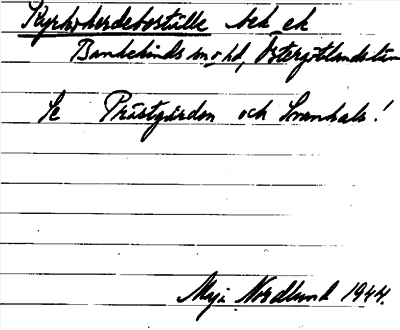 Kyrkoherdeboställe sek ek
Bankekinds sn o hd, Östergötlands län
Se Prästgården och Svanhals!
Maja Nordlund 1944.